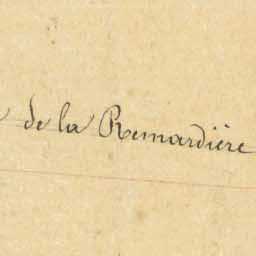 de la Remardière